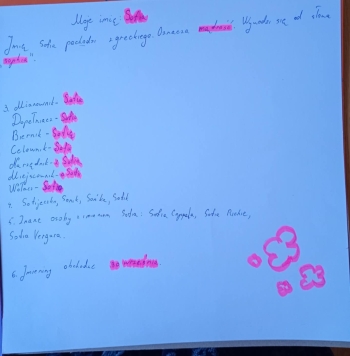 Moje imię: Sofia
Imię Sofia pochodzi z greckiego. Oznacza mądrość. Wywodzi się od słowa
"sophia".
3. Mianownik - Sofia
Dopełniacz - Sofii
Biernik - Sofię
Celownik - Sofii
Narzędnik - z Sofią
Miejscownik - o Sofii
Wołacz - Sofio
4. Sofijeczka, Sofi,
5. Znane osoby z imieniem Sofia: Sofia Coppola, Sofia Richie,
Sofia Vergara.
6. Imieniny obchodzę